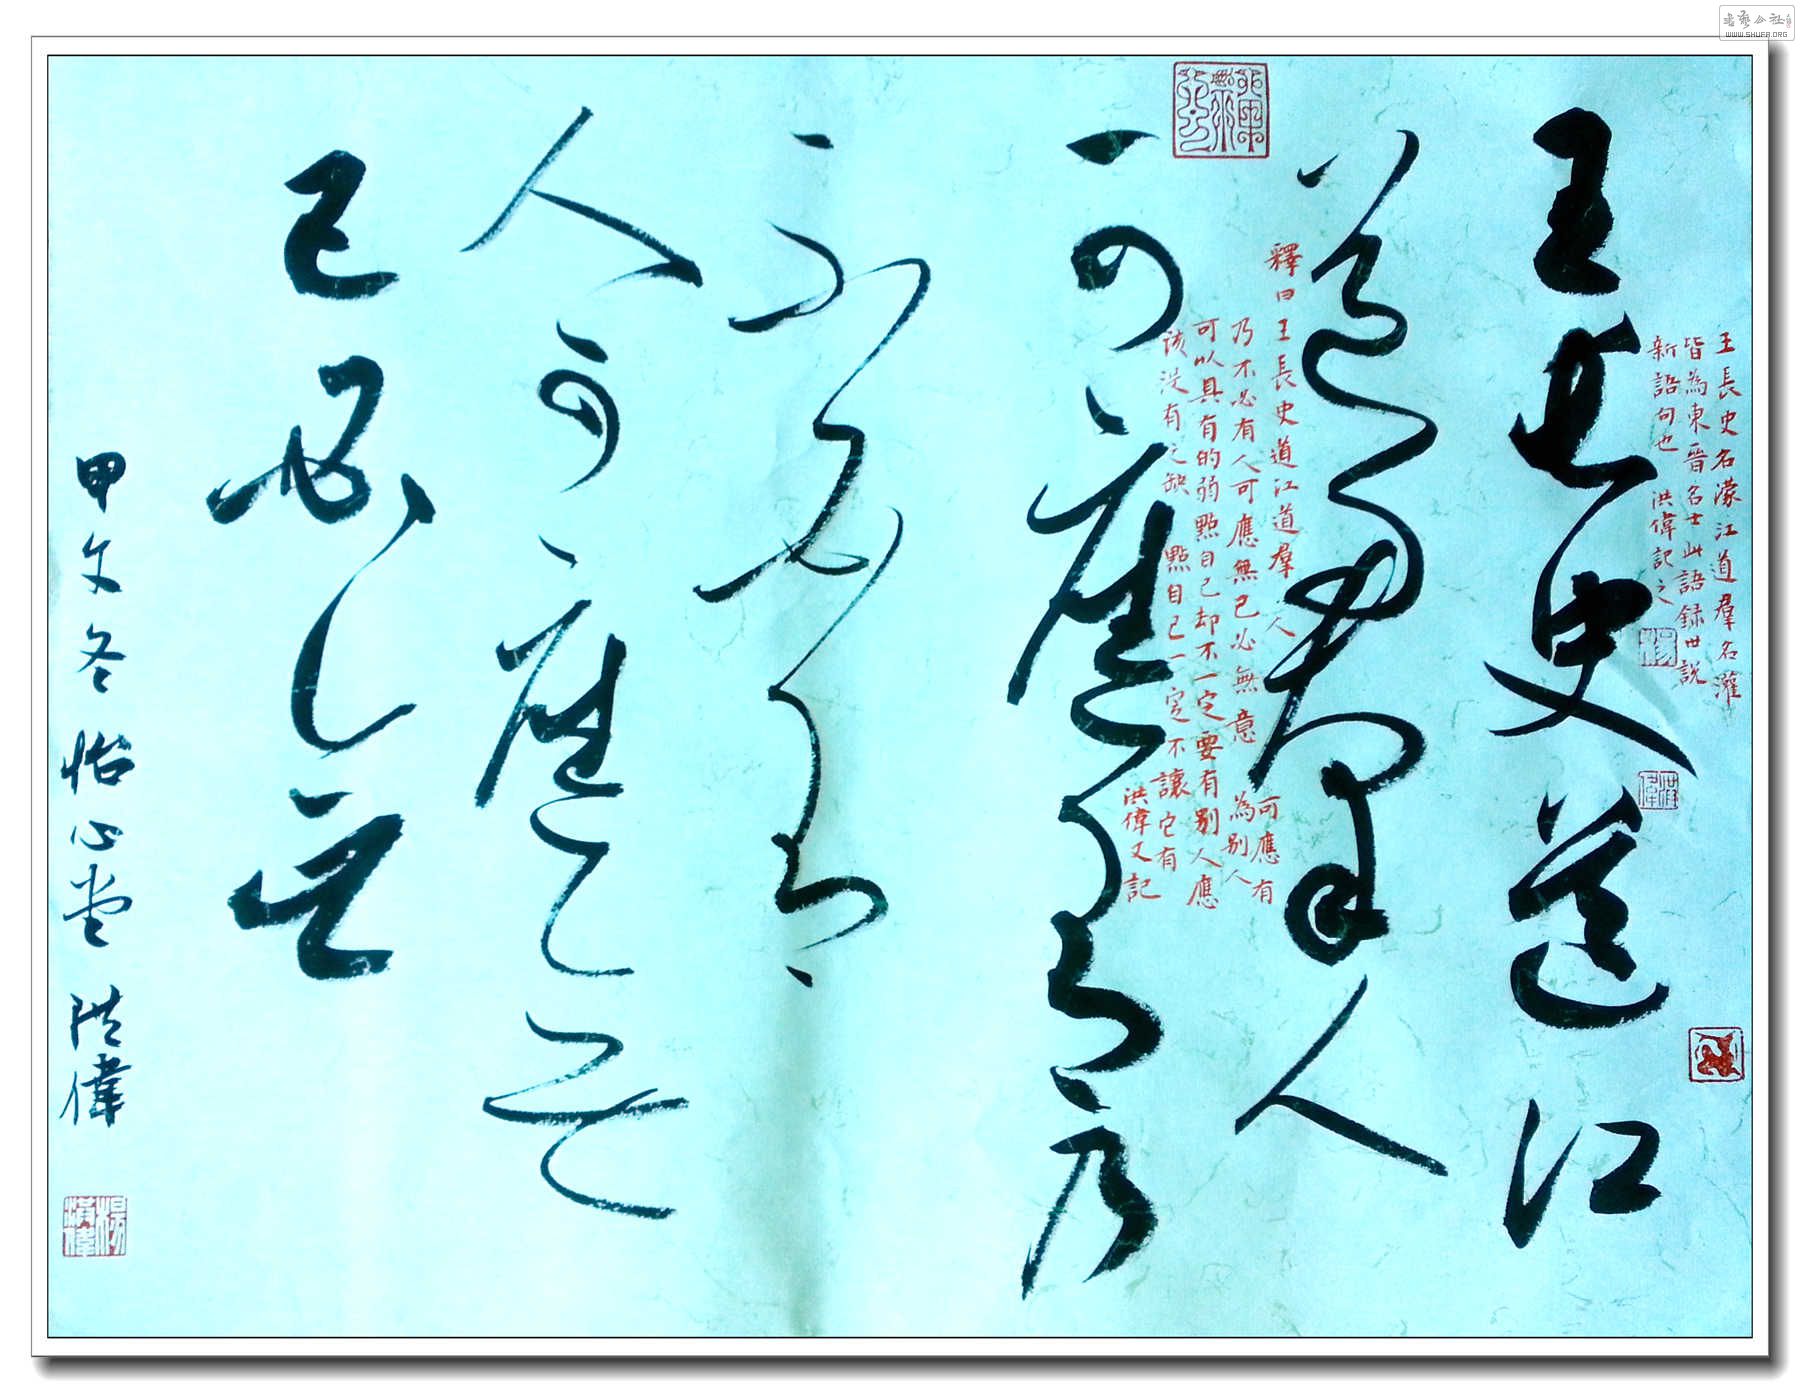 王長史名濛江道羣名灌
皆為東晉名士此語録世說
新語句也 洪偉記之
王長史道江
道羣人
釋曰王長史道江道羣人可應有
乃不必有人可應無己必無意為別人
可以具有的弱點自己却不一定要有别人應
該没有之缺點自己一定不讓它有
洪偉又記
可應有乃
不必有
人可應無
己必無
甲午冬怡心堂洪偉
書藝公社
www.SHUFA.ORG